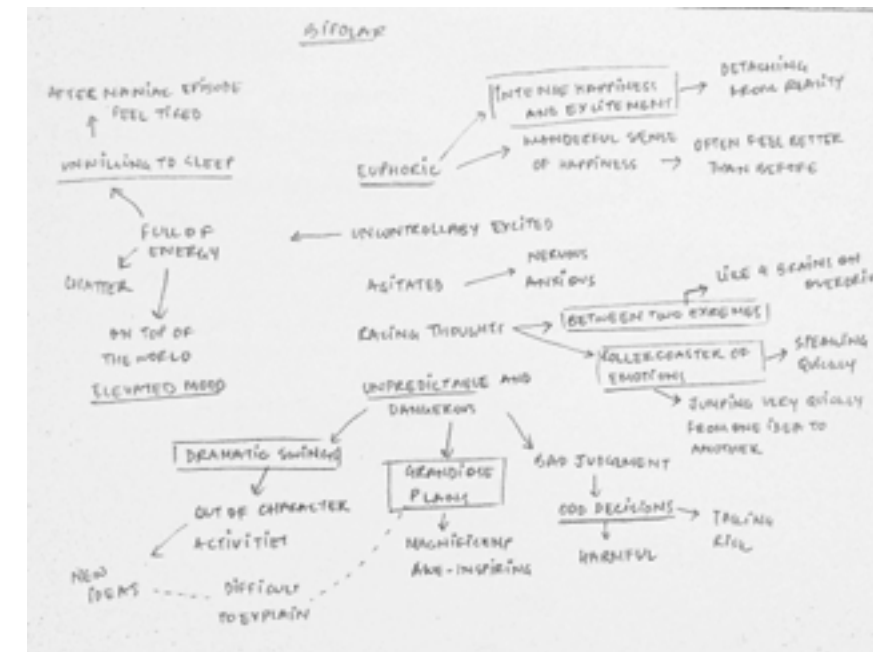 BIPOLAR
AFTER MANIAL EPISODE
FEEL TIRED
UNWILLING TO SLEEP
FULL OF
ENERGY
CHATTER
ON TOP OF
THE WORLD
ELEVATED MOOD
INTENSE HAPPINESS
AND EXCITEMENT
DETACHING
FROM REALITY
EUPHORIC
WONDERFUL SENSE
OF HAPPINESS
OFTEN FEEL BETTER
THAN BEFORE
UNCONTROLLABY EXCITED
AGITATED
NERVOUS
ANXIOUS
RACING THOUGHTS
BETWEEN TWO EXREMES
LIKE A BRAINS ON
OVERDRI
ROLLERCOASTER OF
EMOTIONS
SPEAKING
QUICKLY
JUMPING VERY QUICKLY
FROM ONE IDEA TO
ANOTHER
UNPREDICTABLE AND
DANGEROUS
DRAMATIC SWINGS
OUT OF CHARACTER
ACTIVITIES
NEW
IDEAS
DIFFICULT
TO EXPLAIN
GRANDIOSE
PLANS
MAGNIFICENT
AWE-INSPIRING
BAD JUDGEMENT
ODD DECISIONS
HARMFUL
TAKING
RISK